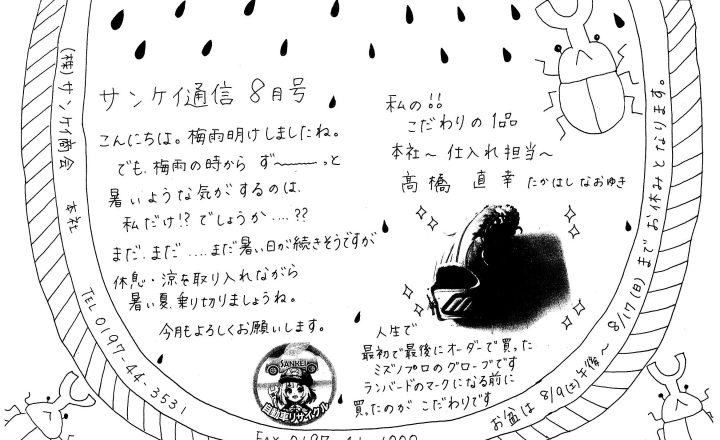 サンケイ通信 8月号
こんにちは。梅雨明けしましたね。
でも、梅雨の時から ず〜〜〜っと
暑いような気がするのは、
私だけ!? でしょうか....??
まだ、まだ....まだ暑い日が続きそうですが
休息・涼を取り入れながら
暑い夏、乗り切りましょうね。
今月もよろしくお願いします。
私の!!
こだわりの1品
本社〜 仕入れ担当〜
髙橋 直幸 たかはしなおゆき
人生で
最初で最後にオーダーで買った
ミズノプロのグローブです
ランバードのマークになる前に
買ったのが こだわりです
(株)サンケイ商会 本社
TEL 0197-44-3531
お盆は 8/9(土)午後〜 8/17(日)までお休みとなります。
SANKEI
自動車リサイクル
FAX 0197